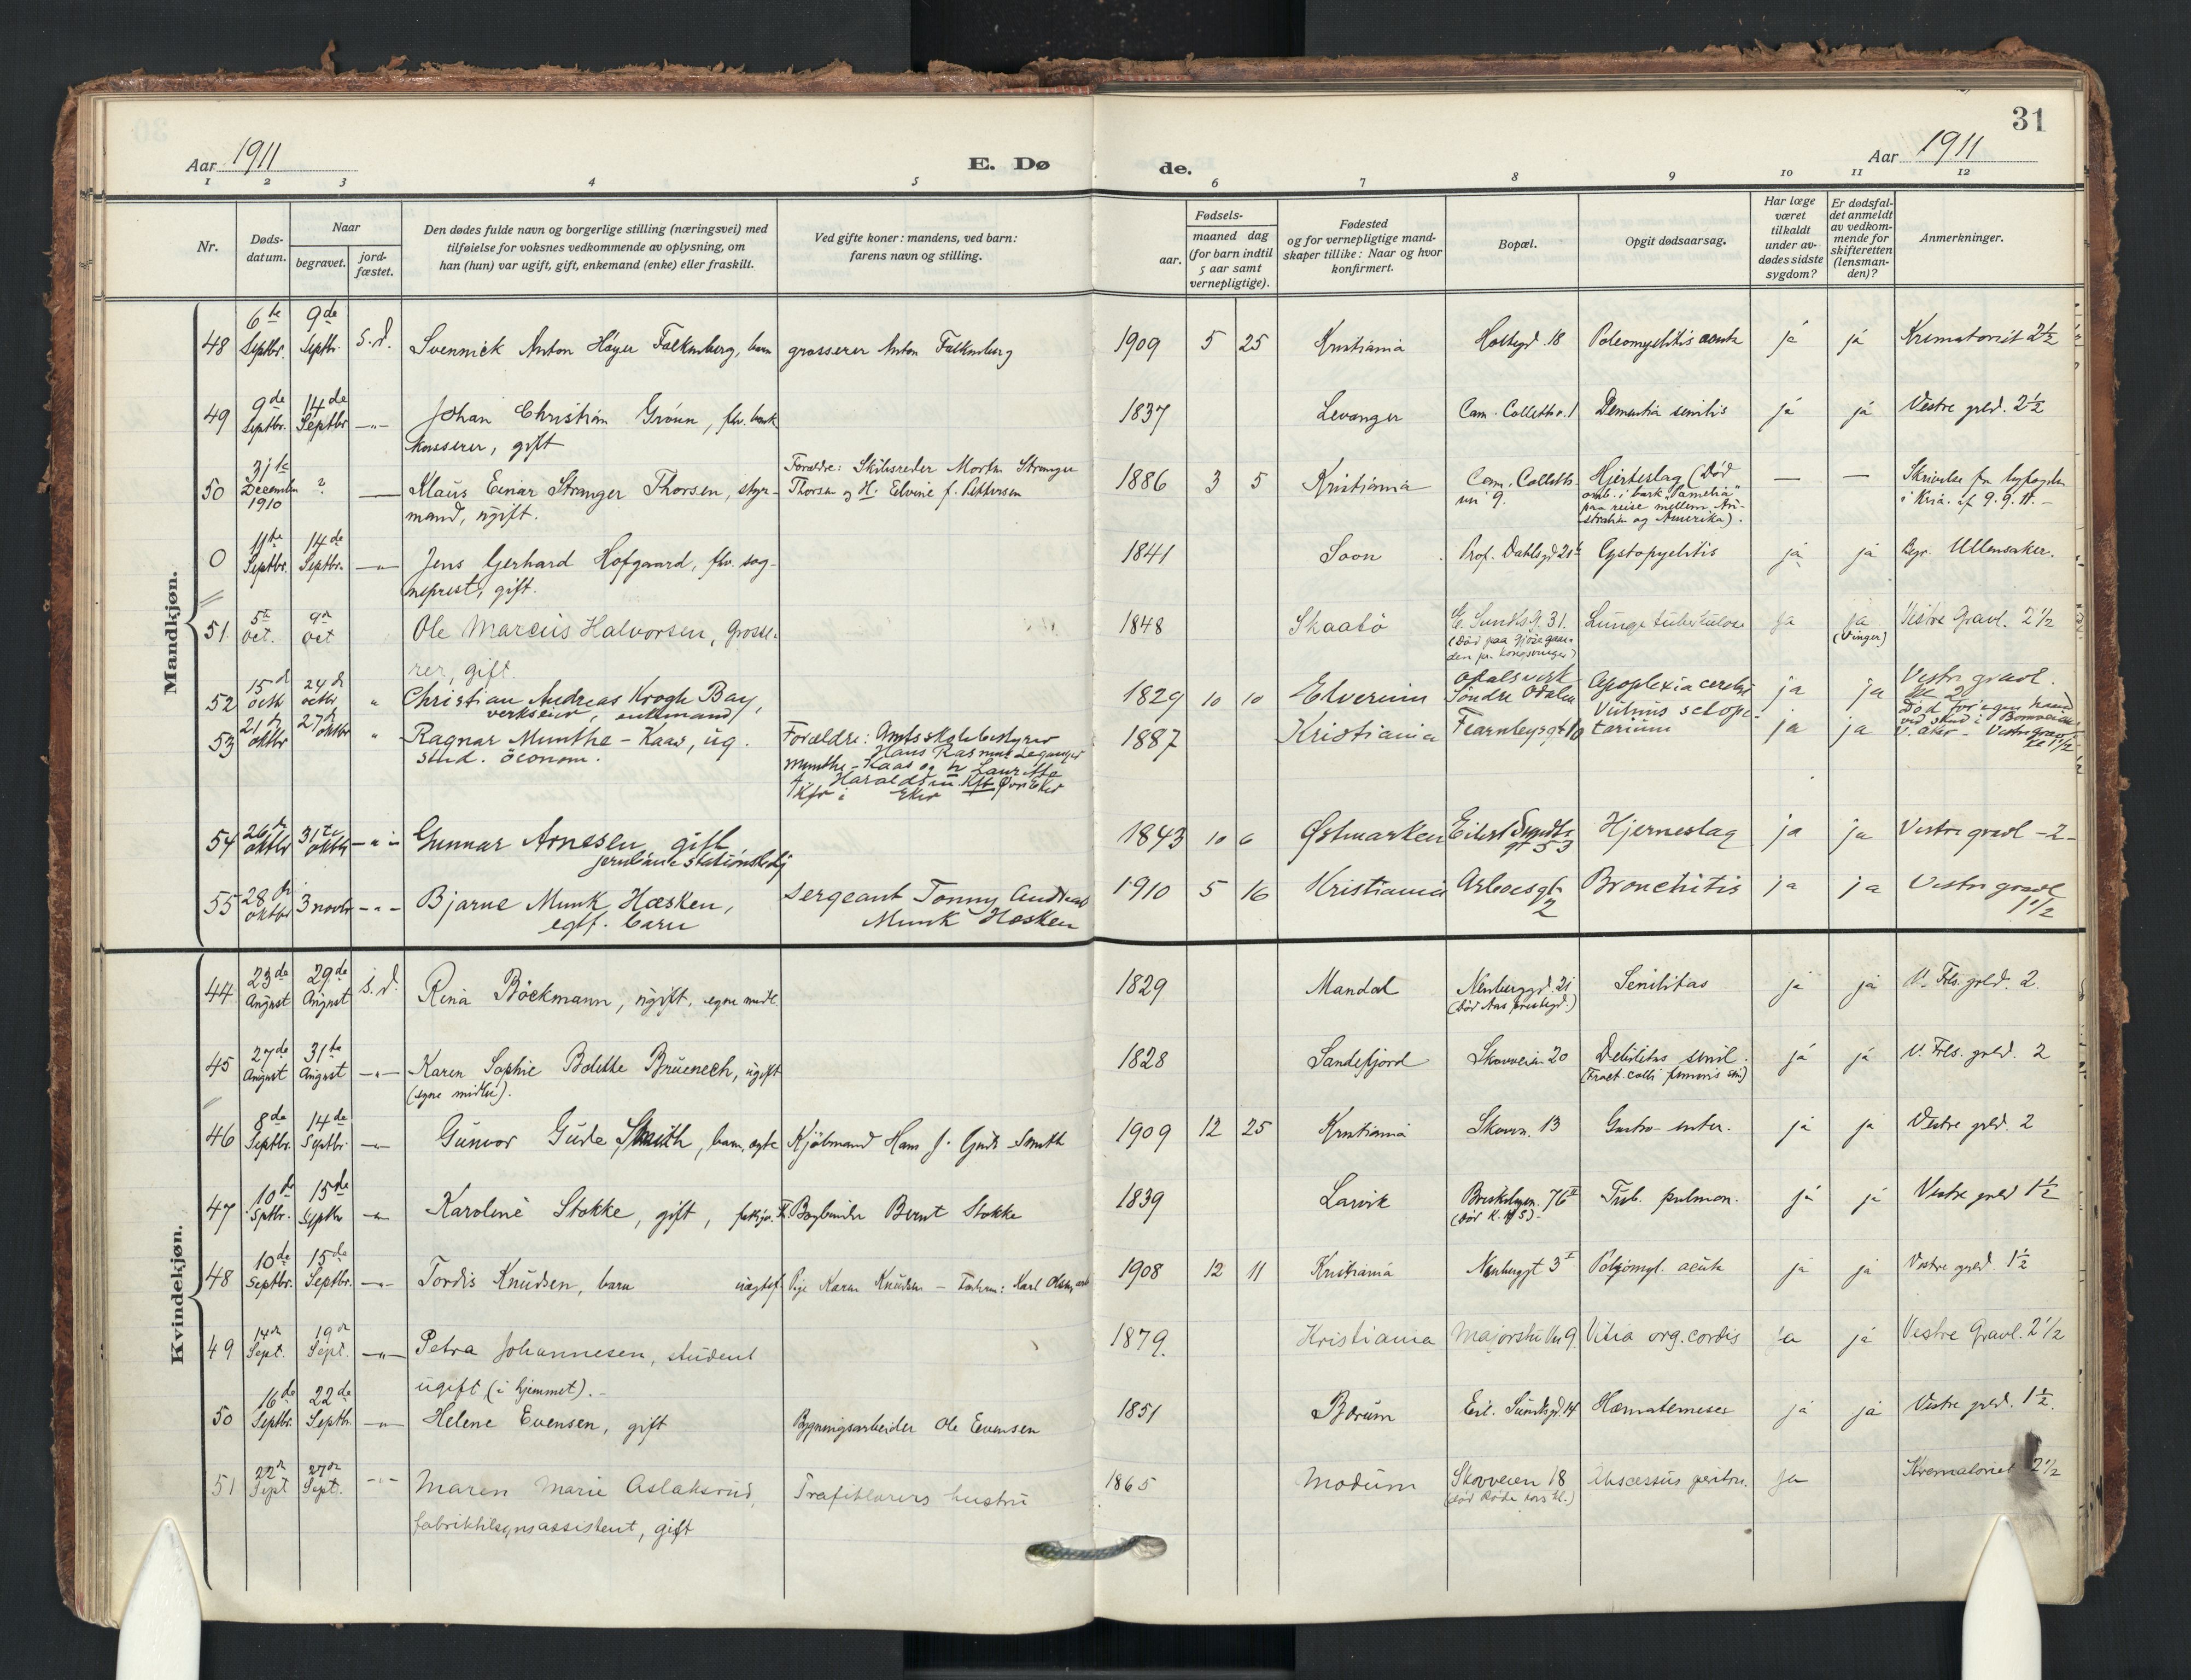 31
Aar 1911
E. Dø
de.
Aar 1911
1 2 3 4 5 6 7 8 9 10 11 12
Nr.
Døds-
datum.
Naar
begravet.
jord-
fæstet.
Den dødes fulde navn og borgerlige stilling (næringsvei) med
tilføielse for voksnes vedkommende av oplysning, om
han (hun) var ugift, gift, enkemand (enke) eller fraskilt.
Ved gifte koner: mandens, ved barn:
farens navn og stilling.
Fødsels-
aar.
maaned dag
(for barn indtil
5 aar samt
vernepligtige).
Fødested
og for vernepligtige mand-
skaper tillike: Naar og hvor
konfirmert.
Bopæl.
Opgit dødsaarsag.
Har læge
været
tilkaldt
under av-
dødes sidste
sygdom?
Er dødsfal-
det anmeldt
av vedkom-
mende for
skifteretten
(lensman-
den)?
Anmerkninger.
Mandkjøn.
48 6te Septbr. 9de Septbr. s.d. Svennick Anton Høyer Falkenberg, barn grosserer Anton Falkenberg 1909 5 25 Kristiania Holtegd. 18 Poleomyelitis acuta ja ja Krematoriet 2½
49 9de Septbr. 14de Septbr. —"— Johan Christian Grönn, fhv. bank
kasserer, gift 1837 Levanger Cam. Collettsv. 1 Dementia senilis ja ja Vestre grld. 2½
50 31te December 1910 ? — Klaus Einar Stranger Thorsen, styr-
mand, ugift.
Forældre: Skibsreder Morten Stranger
Thorsen og H. Elvine f. Pettersen
1886 3 5 Kristiania Cam. Colletts-
vn 9. Hjerteslag (Død
omb. i bark "Pamelia"
paa reise mellem Au-
stralien og Amerika). — — Skrivelse fra byfogden
i Kria. af 9.9.11. —
0 11te Septbr. 14de Septbr. —"— Jens Gerhard Hofgaard, fhv. sog-
neprest, gift. 1841 Soon Prof. Dahlsgd 21 Cystopyelitis ja ja Begr. Ullensaker.
51 5te Oct. 9de Oct Ole Marcius Halvorsen, Grosse-
rer, gift 1848 Skaatö E. Sundts G. 31.
Lungetuberkulose ja ja (Vinger) Vestre Gravl. 2½
52 15d octb 24d octbr " Christian Andreas Krogh Bay,
verkseier, enkemand 1829 10 10 Elverum Odalsverk
Søndre Odalen Apoplexia cerebri ja ja Vestre gravl.
Kl. 2
53 21d oktbr 27d oktbr " Ragnar Munthe-Kaas, ug.
stud. öconom.
Forældre: Amtsskolebestyrer
Hans Rasmus Leganger
Munthe-Kaas og h Lauritze
f. Haraldsen
1887 Kristiania Fearnleysgt 10 Vulnus sclope-
tarium ja ja Død for egen haand
ved skud i
V. Aker - Vestre gravl.
kl 1½
54 26d oktbr 31te oktbr —"— Gunnar Arnesen, gift
1843 10 6 Østmarken Eilert Sundts
gt 53 Hjerneslag ja ja Vestre gravl -2-
55 28d oktbr 3 novbr —"— Bjarne Munk Hæsken,
egtf. barn
Sergeant Tonny Andreas
Munk Hæsken
1910 5 16 Kristiania Arboesgt.
2 Bronchitis ja ja Vestre gravl
1½
Kvindekjøn.
44 23de August 29de August s.d. Rina Böckmann, ugift, egne midl. 1829 Mandal Neuberggd. 21
(død Aas prestegd.) Senilitas ja ja V. Frls. grld. 2.
45 27de August 31te August —"— Karen Sophie Bolette Brüenech, ugift
(egne midler). 1828 Sandefjord Skovveien 20 Debilitas senil.
(Fract. colli femoris sin) ja ja V. Frls. grld. 2
46 8de Septbr. 14de Septbr. —"— Gunvor Gude Smith, barn, egte Kjøbmand Hans J. Gude-Smith 1909 12 25 Kristiania Skovvn. 13 Gastro-enter. ja ja Vestre grld. 2
47 10de Sptbr. 15de Septbr —"— Karoline Stokke, gift, Bogbinder Bernt Stokke 1839 Larvik Briskebyvn. 76II
Tub. pulmon. ja ja Vestre grld 1½
48 10de Septbr. 15de Septbr. —"— Tordis Knudsen, barn uægtef. Pige Karen Knudsen — Faderen: Karl Olsen, arb 1908 12 11 Kristiania Neubergt 3I Poliomyl. acuta ja ja Vestre grld. 1½
49 14de Sept. 19de Sept. —"— Petra Johannesen, student
ugift (i hjemmet). 1879. Kristiania Majorstu Vn 9. Vitia org. cordis ja ja Vestre Gravl. 2½
50 16de Septbr. 22de Septbr. —"— Helene Evensen, gift Bygningsarbeider Ole Evensen 1851 Bærum Eil. Sundtsgd. 14 Hæmatemeses ja ja Vestre grld. 1½.
51 22de Sept 27de Sept. —"— Maren Marie Aslaksrud,
fabriktilsynsassistent, gift
hustru 1865 Modum Skovveien 18
(død Røde Kors Kl.) Abscessus periton. ja Krematoriet 2½